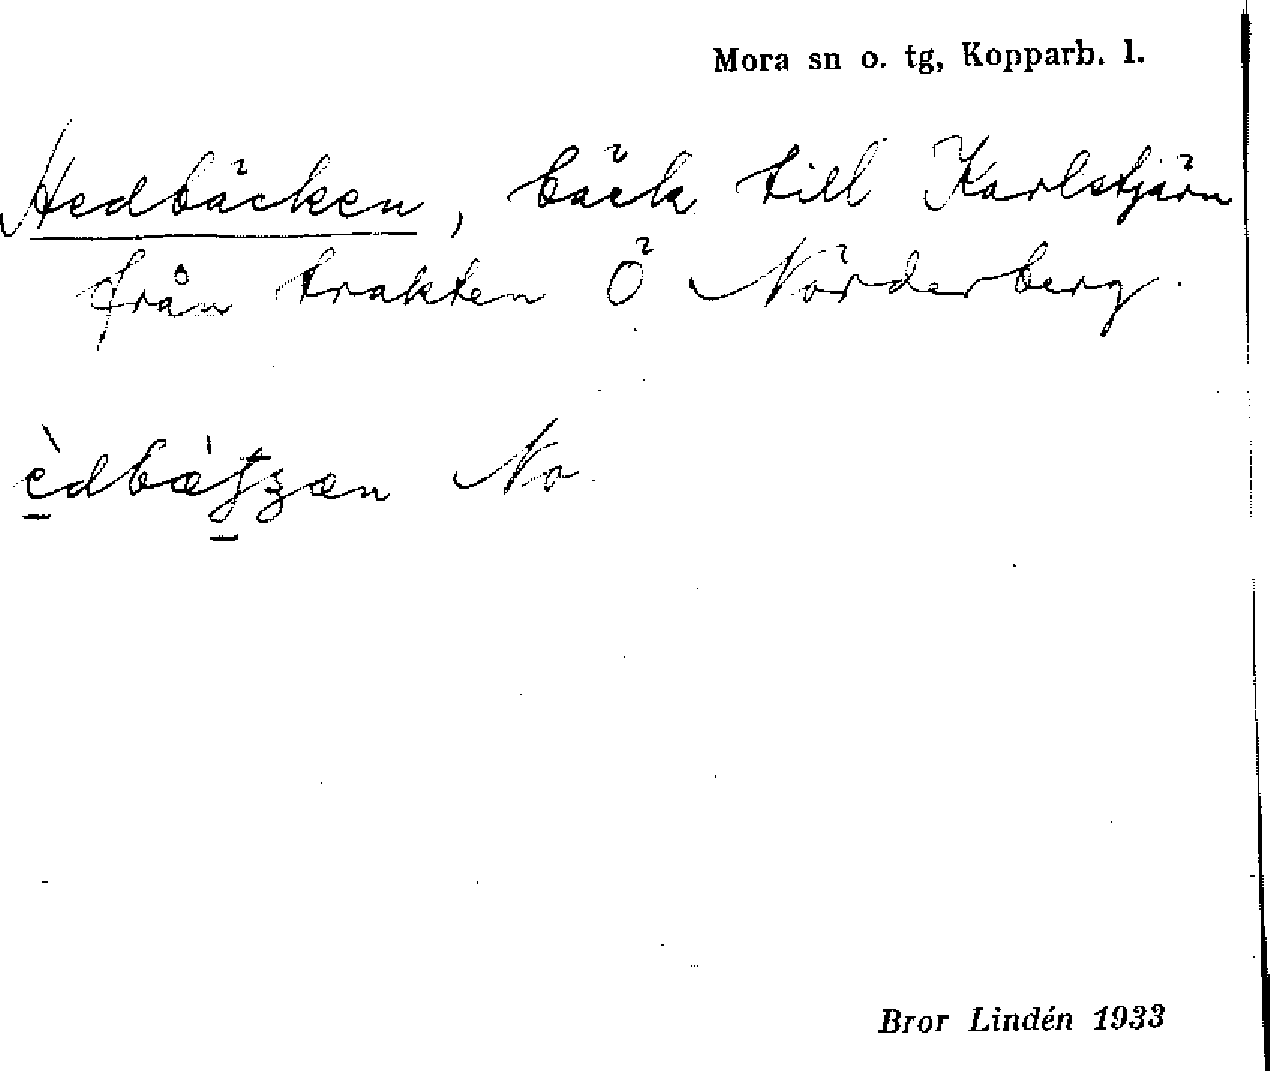 Mora sn o. tg, Kopparb. l.
Hedbäcken, bäck till Karlstjärn
från trakten Ö Nörderberg.
No
Bror Lindén 1933